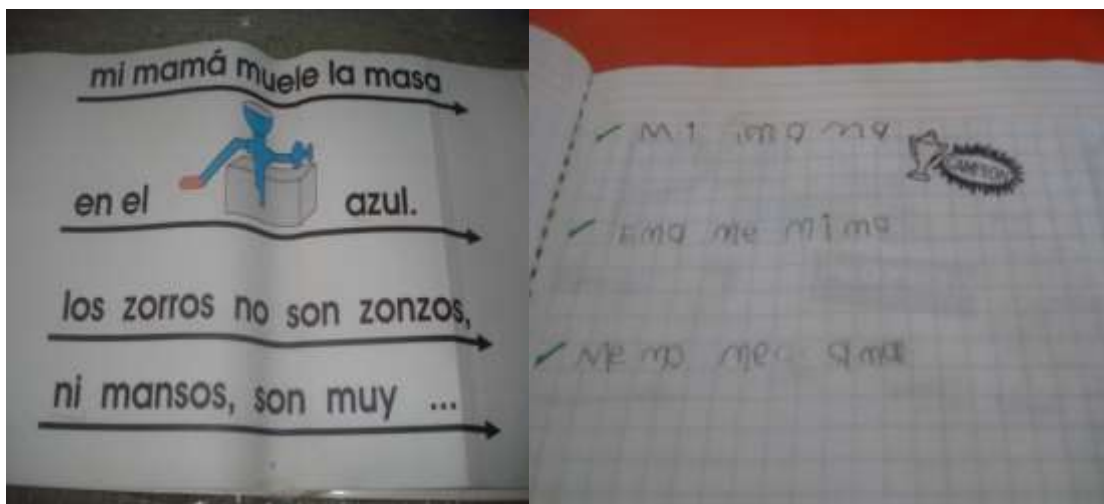 mi mamá muele la masa
en el azul.
los zorros no son zonzos,
ni mansos, son muy ...
Mi ma ma
CAMPEON
Ema me mima
Me mo ama